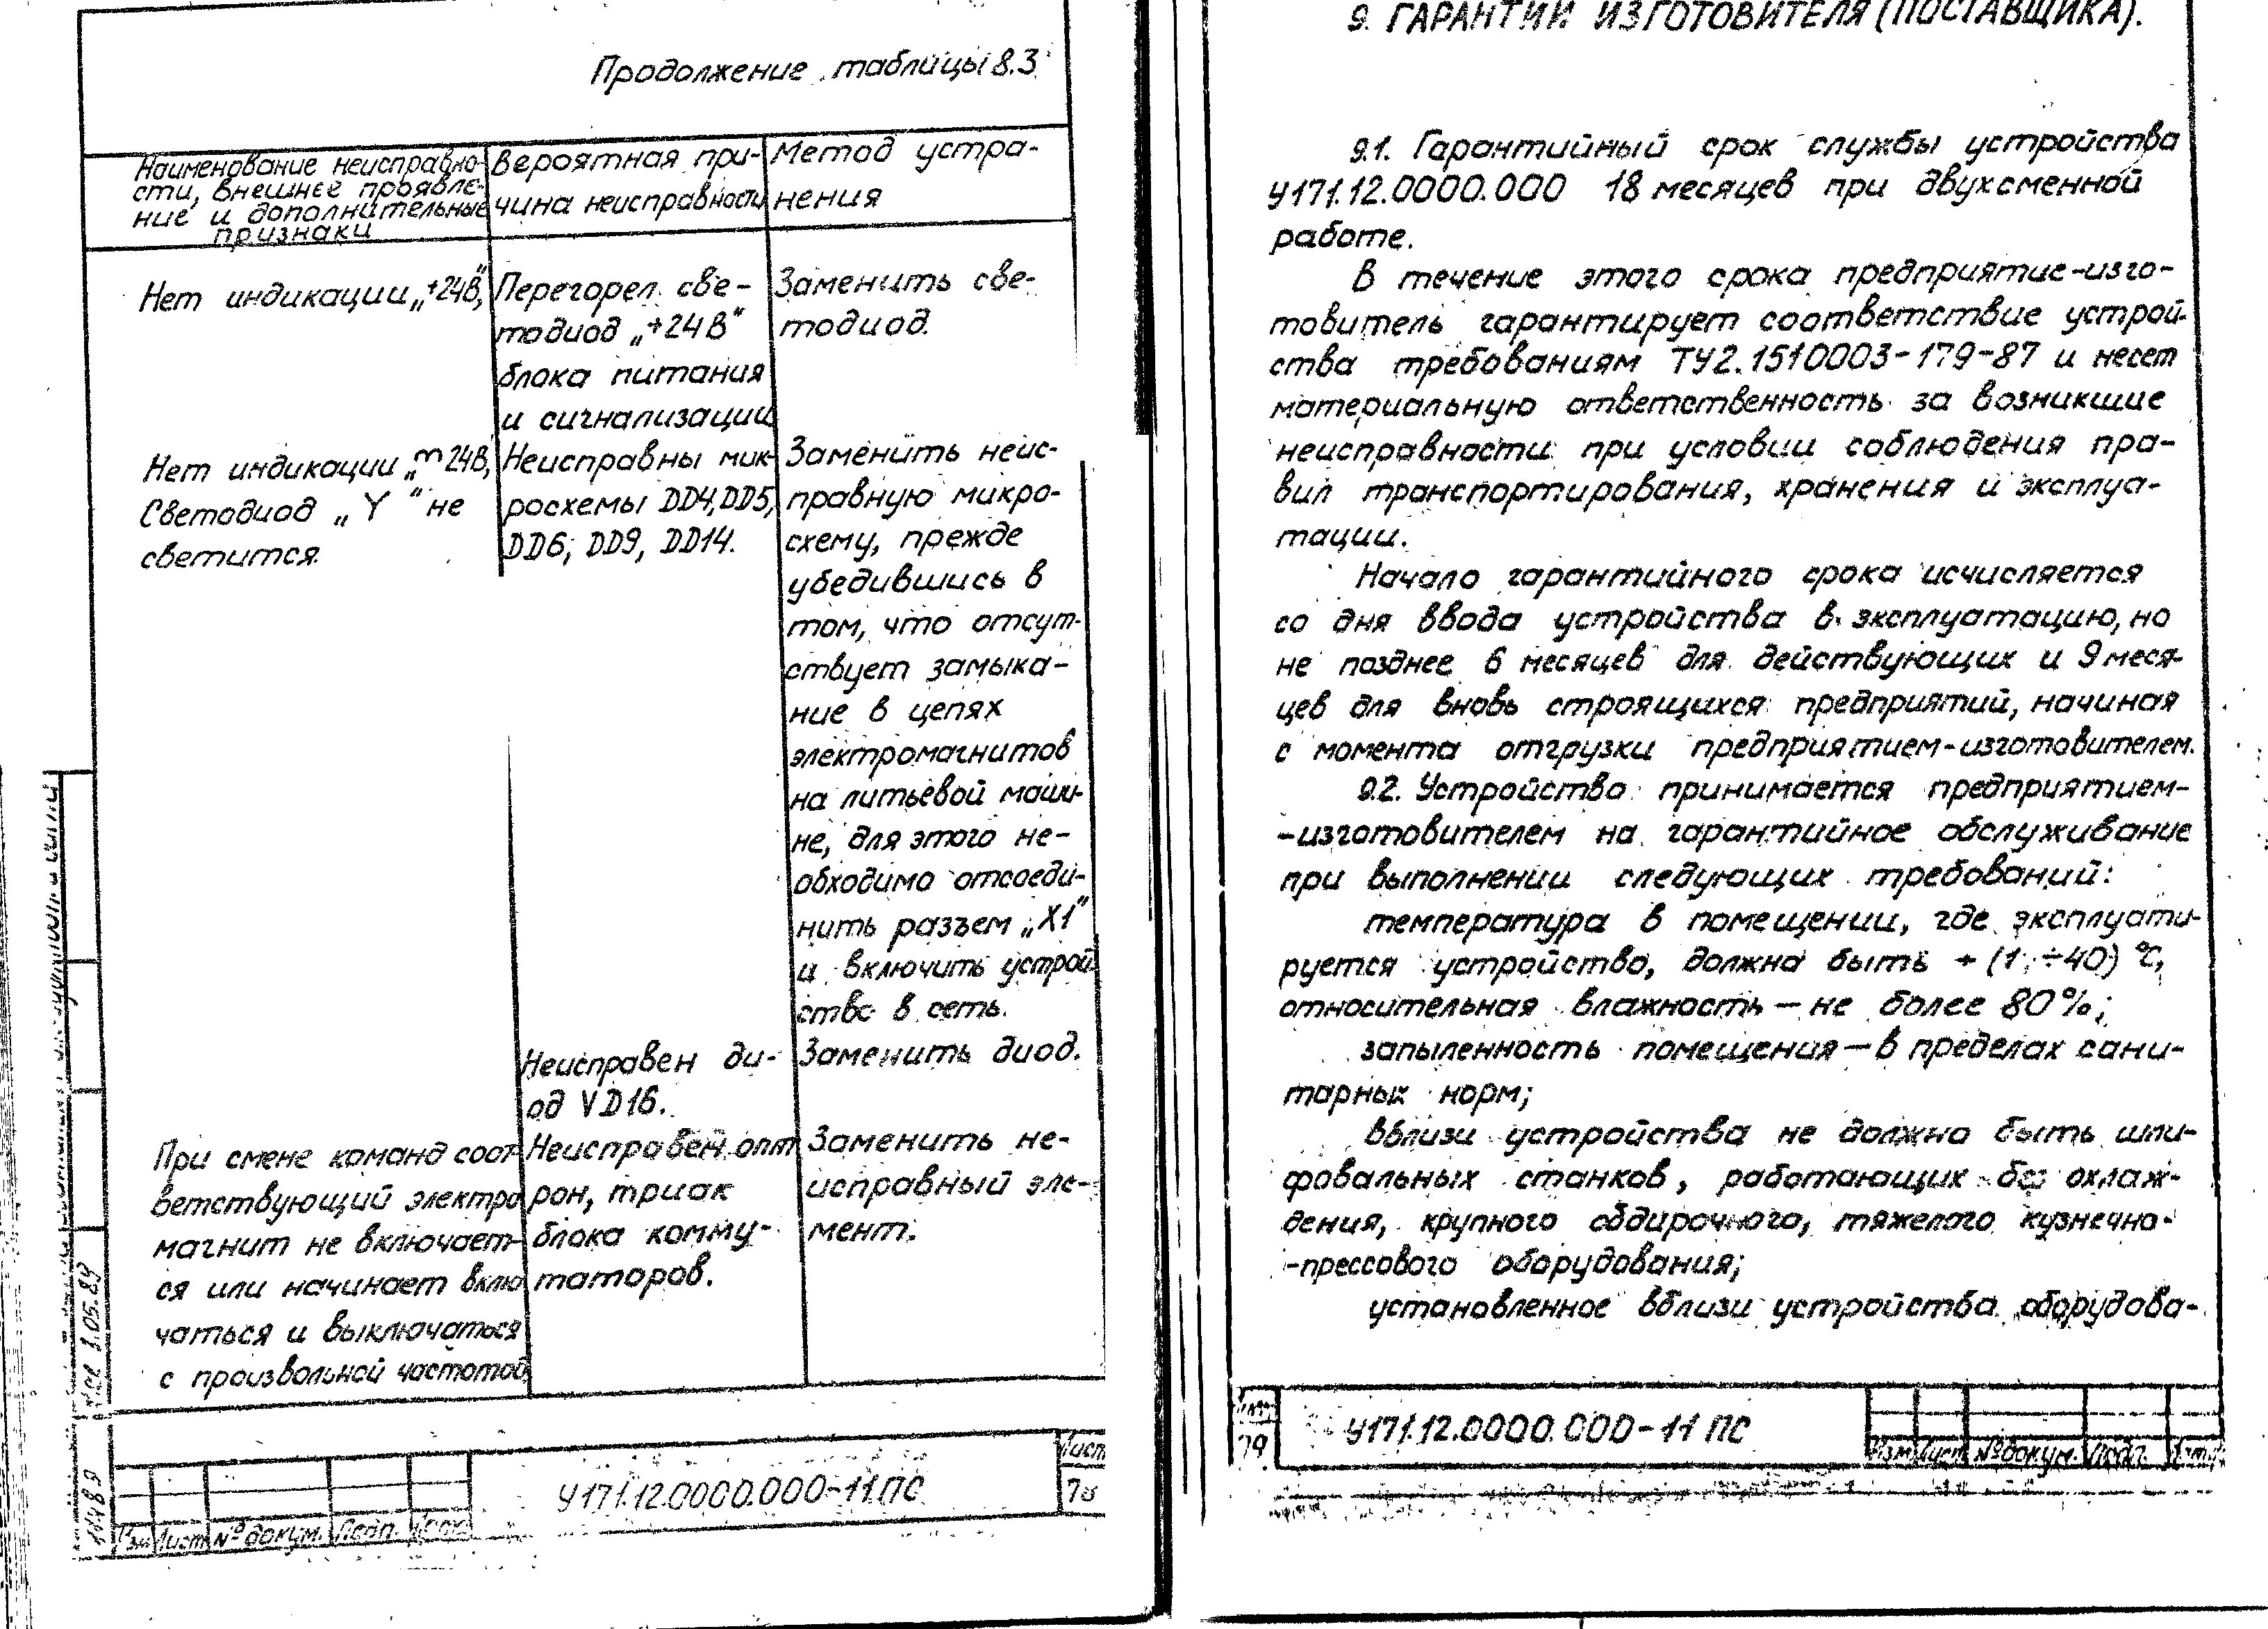 Продолжение таблицы 8.3
Наименование неисправно-
сти, внешнее проявле-
ние и дополнительные
признаки
Вероятная при-
чина неисправности
Метод устра-
нения
Нет индикации „+24В“,
Перегорел све-
тодиод „+24В“
блока питания
и сигнализации
Заменить све-
тодиод.
Нет индикации „ 24В,
Светодиод „Y“ не
светится.
Неисправны мик-
росхемы DD4, DD5,
DD6, DD9, DD14.
Заменить неис-
правную микро-
схему, прежде
убедившись в
том, что отсут-
ствует замыка-
ние в цепях
электромагнитов
на литьевой маши-
не, для этого не-
обходимо отсоеди-
нить разъем „X1“
и включить устрой-
ство в сеть.
Неисправен ди-
од VD16.
Заменить диод.
При смене команд соот-
ветствующий электро
магнит не включает-
ся или начинает вклю
чаться и выключаться
с произвольной частотой,
Неисправен опт
рон, триак
блока комму-
таторов.
Заменить не-
исправный эле-
мент.
У171.12.0000.000-11.ПС
Лист
78
Изм Лист № докум. Подп. Дата
9. ГАРАНТИИ ИЗГОТОВИТЕЛЯ (ПОСТАВЩИКА).
9.1. Гарантийный срок службы устройства
У171.12.0000.000 18 месяцев при двухсменной
работе.
В течение этого срока предприятие-изго-
товитель гарантирует соответствие устрой-
ства требованиям ТУ2.1510003-179-87 и несет
материальную ответственность за возникшие
неисправности при условии соблюдения пра-
вил транспортирования, хранения и эксплуа-
тации.
Начало гарантийного срока исчисляется
со дня ввода устройства в эксплуатацию, но
не позднее 6 месяцев для действующих и 9 меся-
цев для вновь строящихся предприятий, начиная
с момента отгрузки предприятием-изготовителем.
9.2. Устройство принимается предприятием-
-изготовителем на гарантийное обслуживание
при выполнении следующих требований:
температура в помещении, где эксплуати-
руется устройство, должна быть + (1 ÷40) °С,
относительная влажность — не более 80%;
запыленность помещения — в пределах сани-
тарных норм;
вблизи устройства не должно быть шли-
фовальных станков, работающих без охлаж-
дения, крупного обдирочного, тяжелого кузнечно-
-прессового оборудования;
установленное вблизи устройства оборудова-
Лист
79
У171.12.0000.000-11 ПС
Изм Лист № докум. Подп. Дата